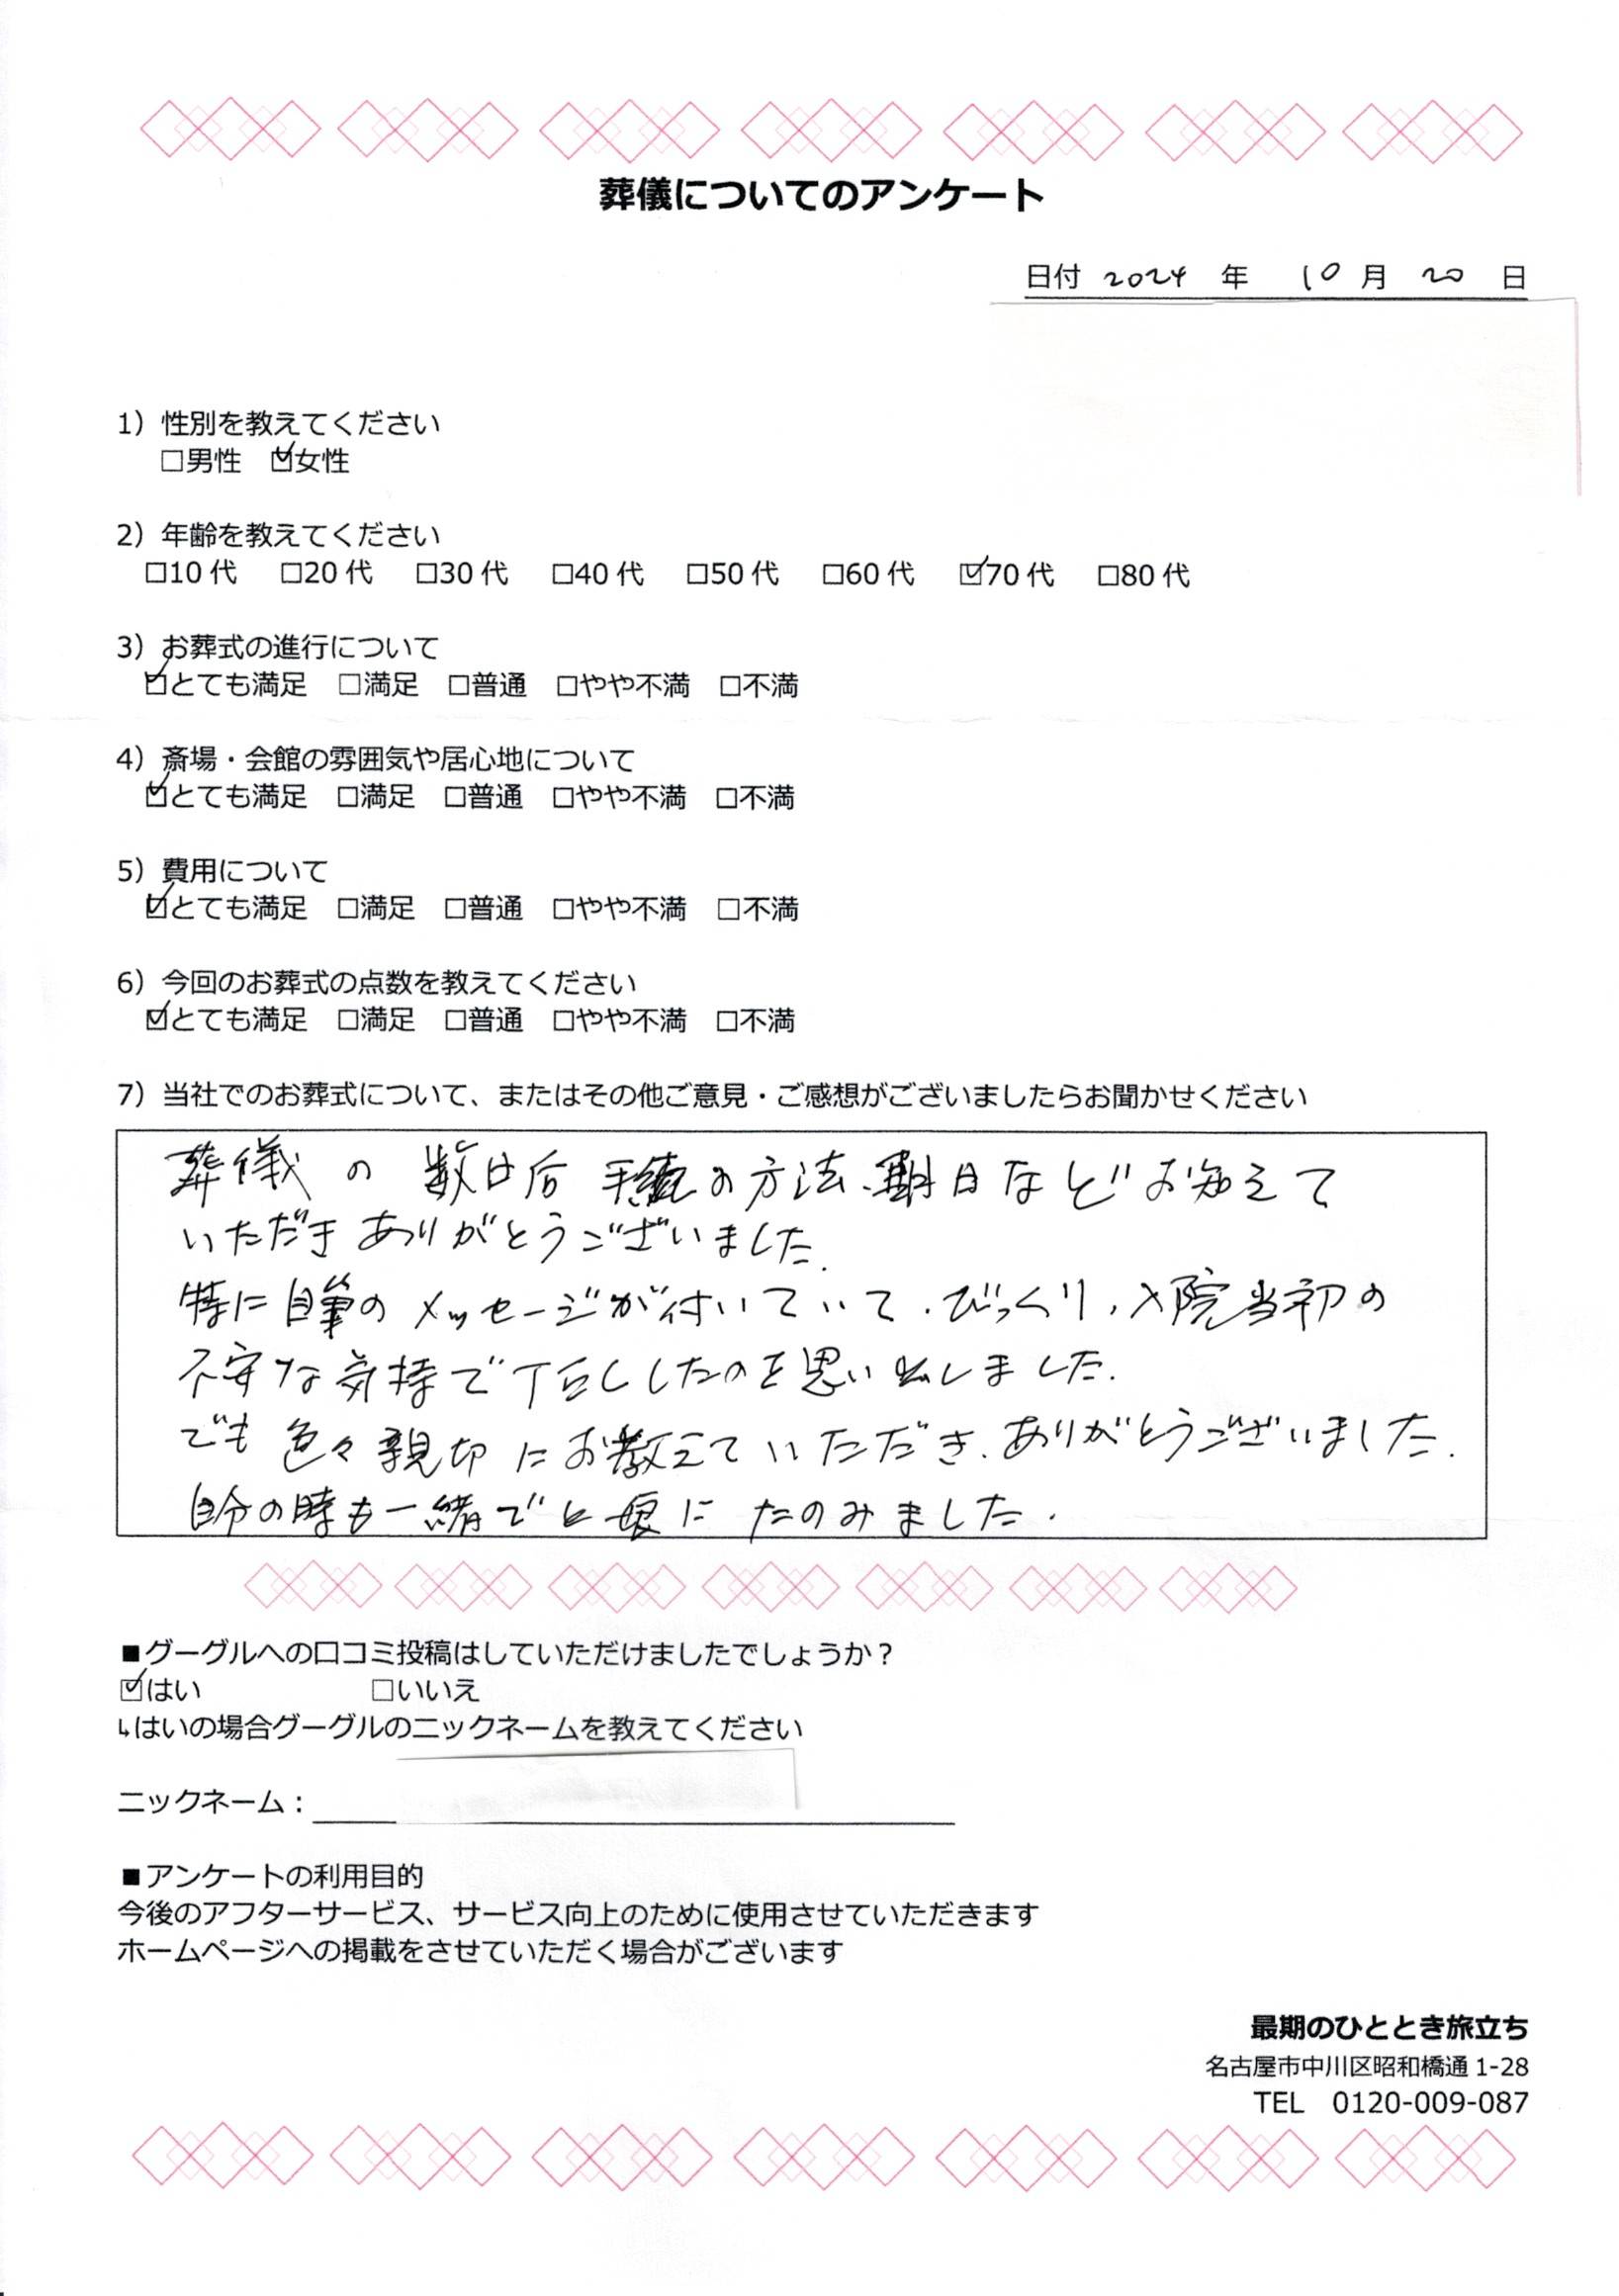 葬儀についてのアンケート
日付 2024 年 10 月 20 日
1）性別を教えてください
□男性 ☑女性
2）年齢を教えてください
□10代 □20代 □30代 □40代 □50代 □60代 ☑70代 □80代
3）お葬式の進行について
☑とても満足 □満足 □普通 □やや不満 □不満
4）斎場・会館の雰囲気や居心地について
☑とても満足 □満足 □普通 □やや不満 □不満
5）費用について
☑とても満足 □満足 □普通 □やや不満 □不満
6）今回のお葬式の点数を教えてください
☑とても満足 □満足 □普通 □やや不満 □不満
7）当社でのお葬式について、またはその他ご意見・ご感想がございましたらお聞かせください
葬儀の数日后 手続の方法、期日などお知えて
いただきありがとうございました。
特に自筆のメッセージが付いていて、びっくり、入院当初の
不安な気持でTELしたのを思い出しました。
でも色々親切にお教えていただき、ありがとうございました。
自分の時も一緒でと娘にたのみました。
■グーグルへの口コミ投稿はしていただけましたでしょうか？
☑はい □いいえ
↳はいの場合グーグルのニックネームを教えてください
ニックネーム：
■アンケートの利用目的
今後のアフターサービス、サービス向上のために使用させていただきます
ホームページへの掲載をさせていただく場合がございます
最期のひととき旅立ち
名古屋市中川区昭和橋通1-28
TEL 0120-009-087